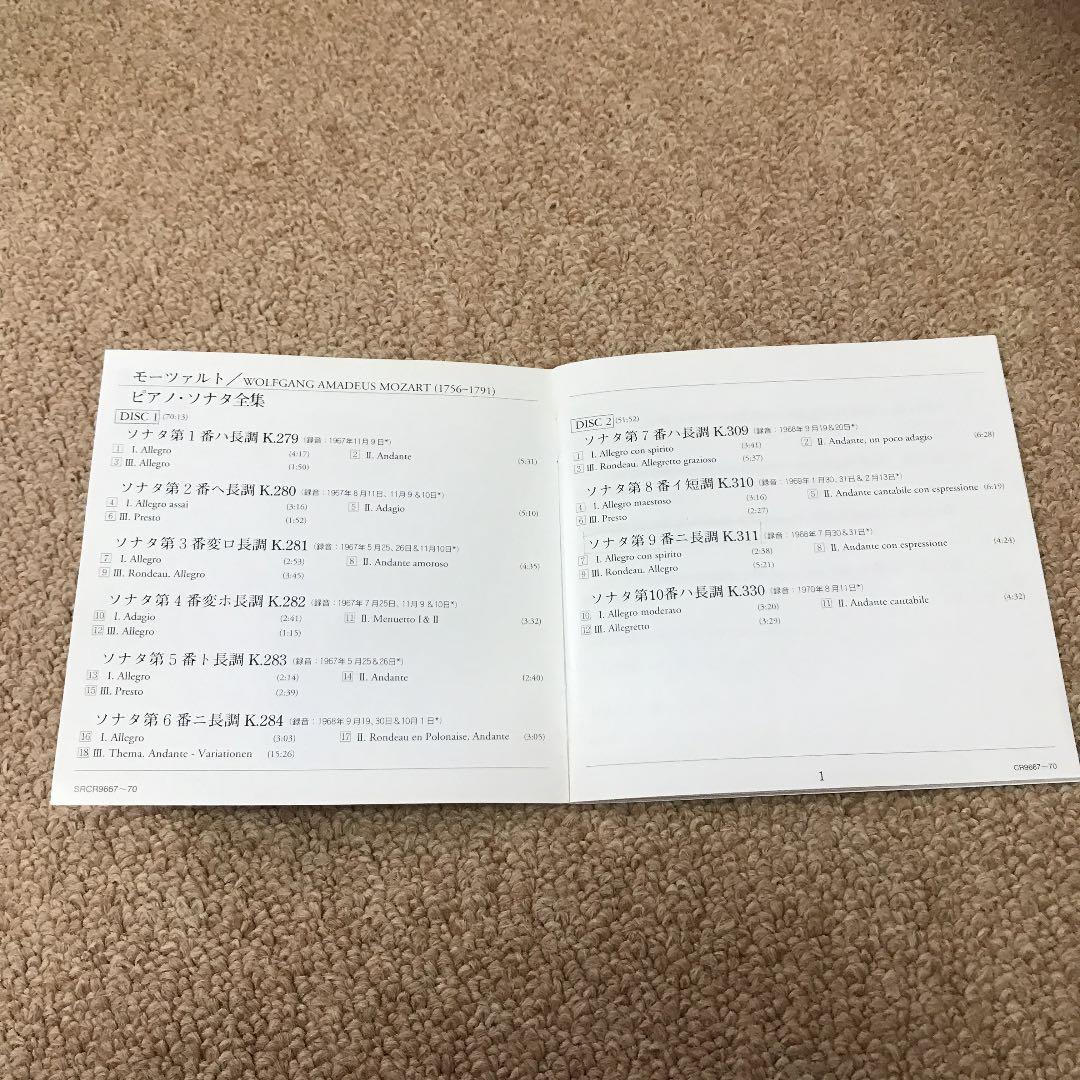 モーツァルト／WOLFGANG AMADEUS MOZART (1756–1791)
ピアノ・ソナタ全集
DISC 1 (70:13)
ソナタ第1番ハ長調 K.279 (録音：1967年11月9日*)
1 I. Allegro (4:17) 2 II. Andante (5:31)
3 III. Allegro (1:50)
ソナタ第2番ヘ長調 K.280 (録音：1967年8月11日、11月9&10日*)
4 I. Allegro assai (3:16) 5 II. Adagio (5:10)
6 III. Presto (1:52)
ソナタ第3番変ロ長調 K.281 (録音：1967年5月25、26日&11月10日*)
7 I. Allegro (2:53) 8 II. Andante amoroso (4:35)
9 III. Rondeau. Allegro (3:45)
ソナタ第4番変ホ長調 K.282 (録音：1967年7月25日、11月9&10日*)
10 I. Adagio (2:41) 11 II. Menuetto I & II (3:32)
12 III. Allegro (1:15)
ソナタ第5番ト長調 K.283 (録音：1967年5月25&26日*)
13 I. Allegro (2:14) 14 II. Andante (2:40)
15 III. Presto (2:39)
ソナタ第6番ニ長調 K.284 (録音：1968年9月19、30日&10月1日*)
16 I. Allegro (3:03) 17 II. Rondeau en Polonaise. Andante (3:05)
18 III. Thema. Andante - Variationen (15:26)
SRCR9667〜70
DISC 2 (51:52)
ソナタ第7番ハ長調 K.309 (録音：1968年9月19&20日*)
1 I. Allegro con spirito (3:41) 2 II. Andante, un poco adagio (6:28)
3 III. Rondeau. Allegretto grazioso (5:37)
ソナタ第8番イ短調 K.310 (録音：1969年1月30、31日&2月13日*)
4 I. Allegro maestoso (3:16) 5 II. Andante cantabile con espressione (6:19)
6 III. Presto (2:27)
ソナタ第9番ニ長調 K.311 (録音：1968年7月30&31日*)
7 I. Allegro con spirito (2:38) 8 II. Andante con espressione (4:24)
9 III. Rondeau. Allegro (5:21)
ソナタ第10番ハ長調 K.330 (録音：1970年8月11日*)
10 I. Allegro moderato (3:20) 11 II. Andante cantabile (4:32)
12 III. Allegretto (3:29)
1
CR9667〜70